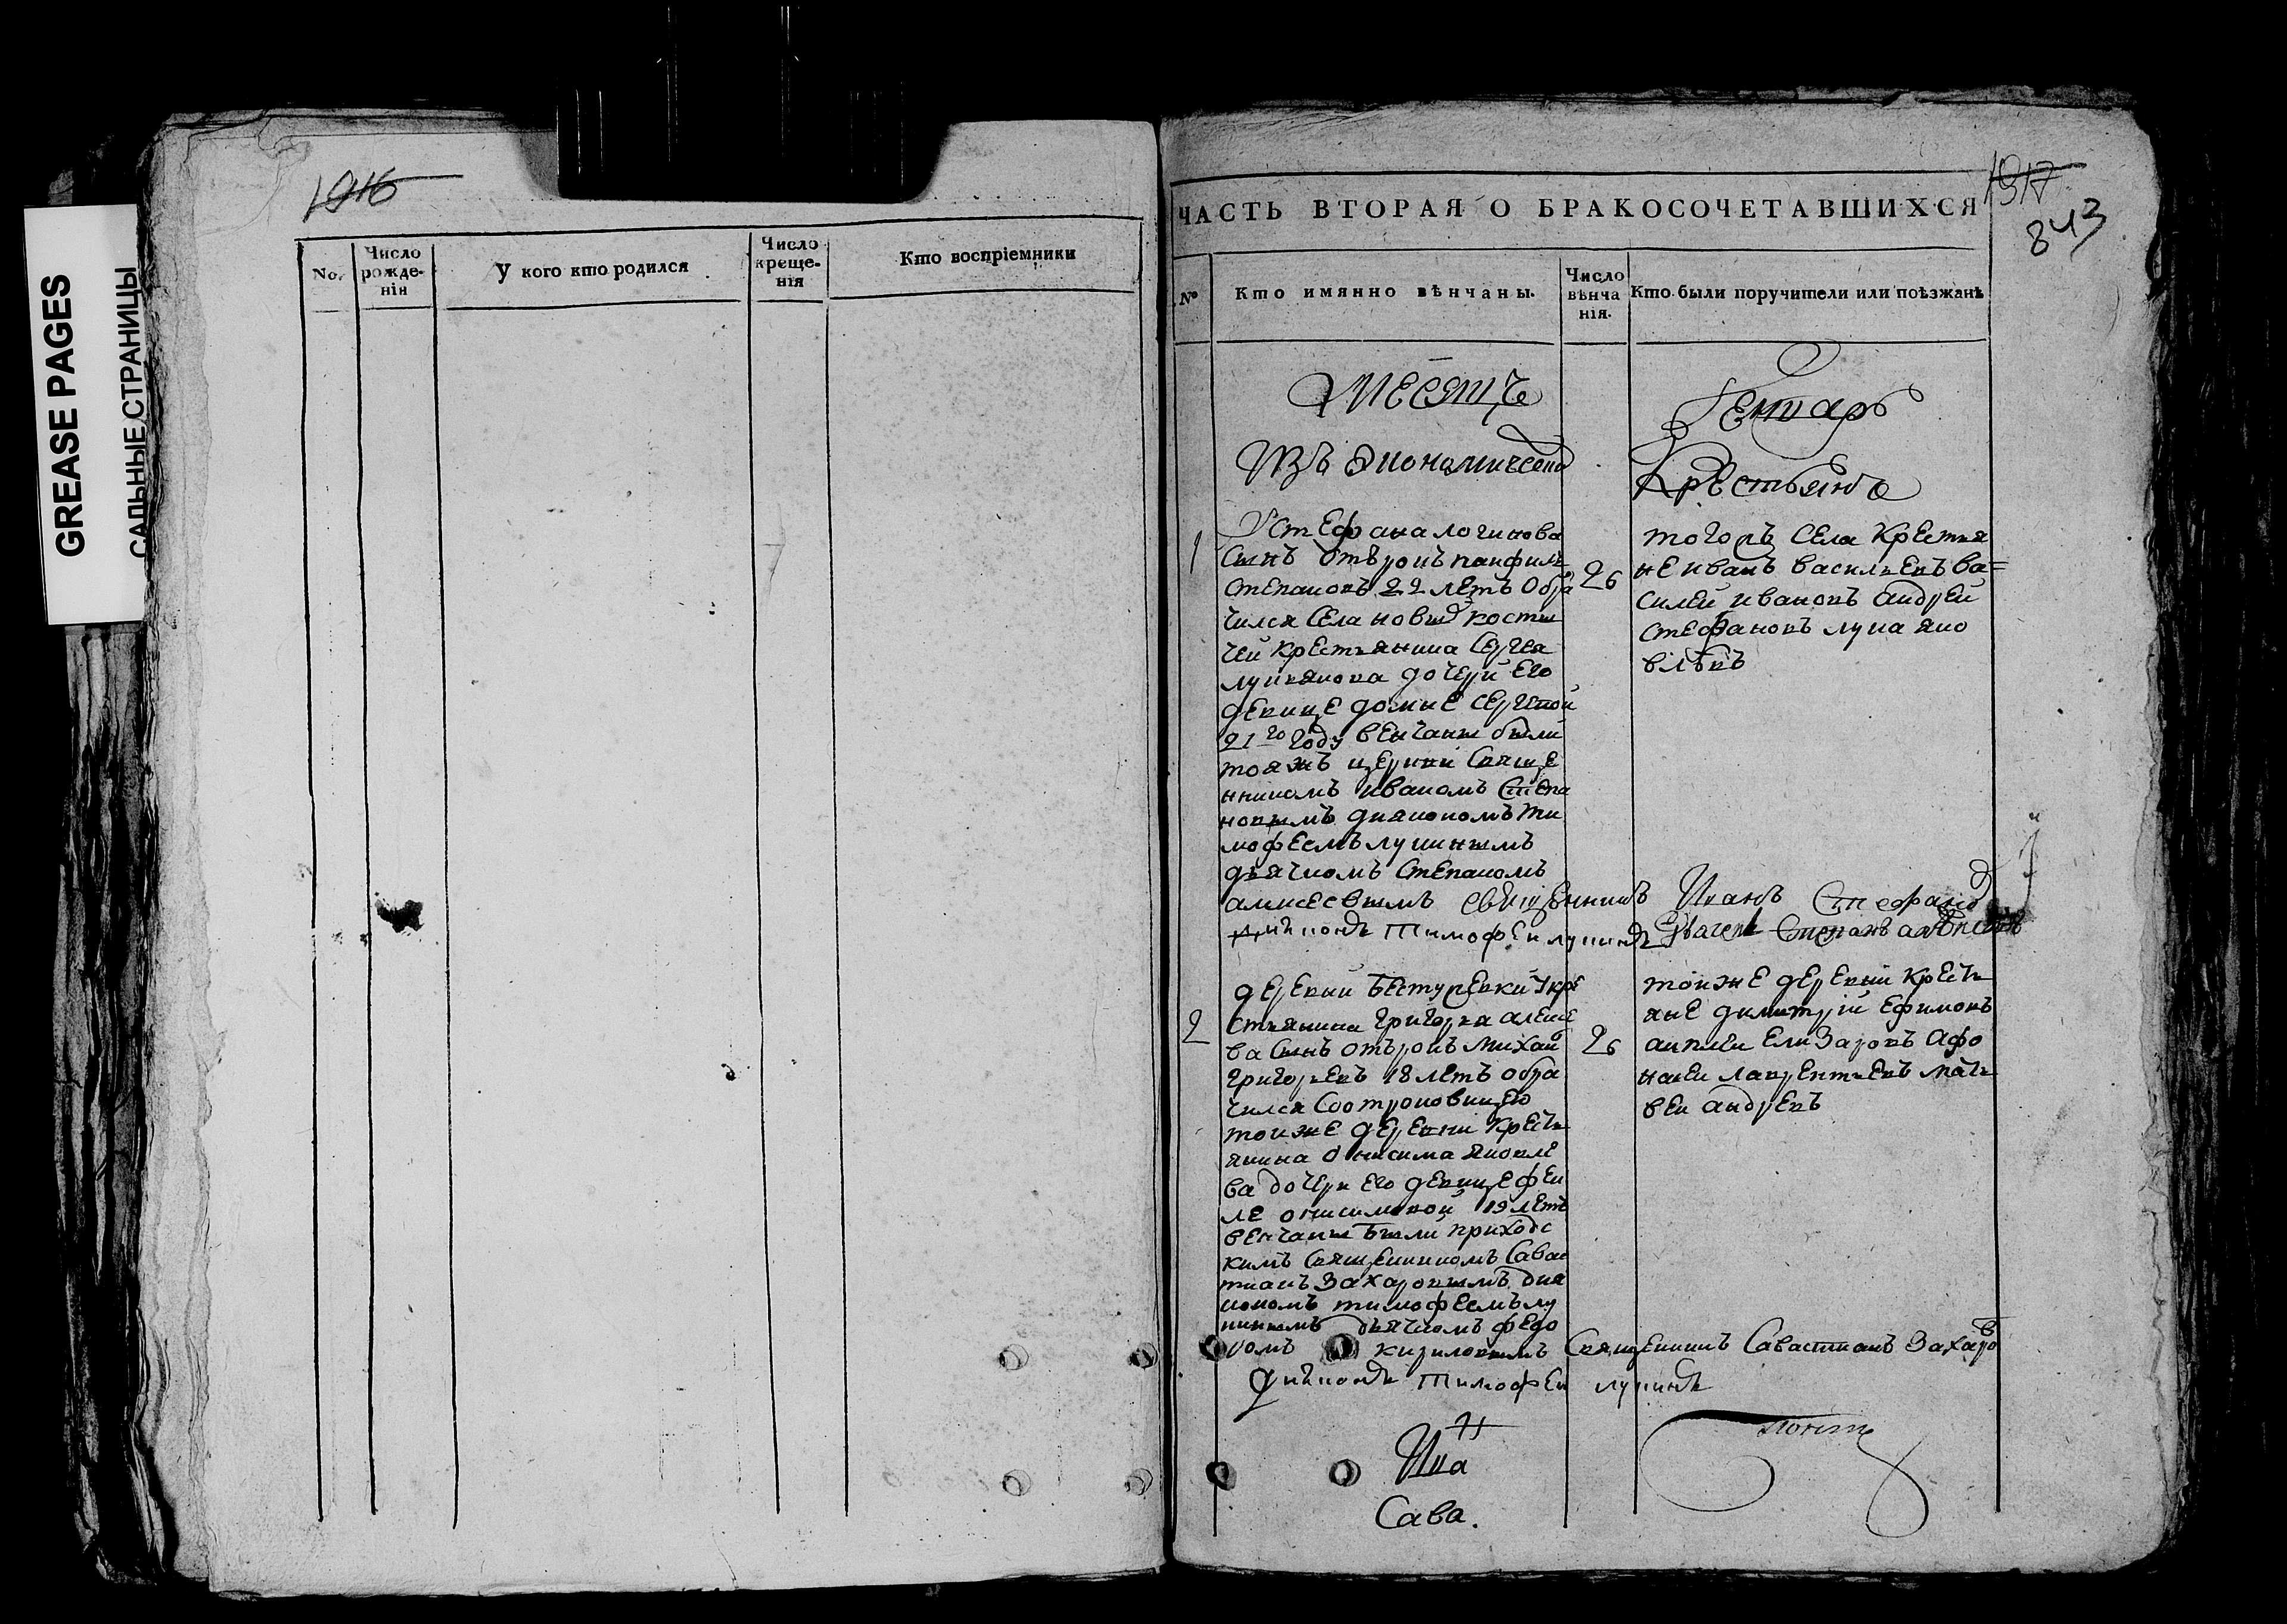 GREASE PAGES
САЛЬНЫЕ СТРАНИЦЫ
1916
No.
Число рожде- нія
У кого кто родился
Число креще- нія
Кто воспріемники
1917
843
ЧАСТЬ ВТОРАЯ О БРАКОСОЧЕТАВШИХСЯ
No
Кто имянно вѣнчаны.
Число вѣнча нія.
Кто были поручители или поѣзжанѣ
Месяцъ
Генварь
Изъ
Крестьянъ
1
У Стефана логинова
сынъ отърокъ панфилъ
степановъ 22 летъ обра
чился села новыхъ косты
чей крестьянина Сергея
лукьянова дочери его
девице домне Сергевой
21 го году венчаны были
тояжъ церкви Свяще
нникомъ иваномъ Степа
новымъ диякономъ ти
мофеемъ лукинымъ
дьячкомъ Степаномъ
аликсевымъ
26
тогожъ села крестья
не иванъ васильевъ ва=
силей ивановъ андрей
стефановъ лука яко
влѣвъ
священникъ Иванъ Стефановъ
диѣконъ Тимофеи лукинъ Дьячекъ Степанъ алѣксѣевъ
2
деревни бестужевки У кре
стьянина григорья алексе
ва сынъ отърокъ михаи
григорьевъ 18 летъ обра
чился Соотроковицею
тоиже деревни крестъ
янина Онисима яковле
ва дочери его девице феи
ле онисимовой 19 летъ
венчаны были приходс
кимъ священникомъ Савас
тианъ Захаровымъ дия
кономъ тимофеемъ лу
кинымъ дьячкомъ федо
ромъ кириловымъ
26
тоиже деревни крестъ
яне димитрій Ефимовъ
Елизаровъ Афо
насеи лаврентьевъ мать
веи андревъ
Священникъ Савастианъ Захаровъ
Диѣконъ Тимофеи лукинъ
Сава.